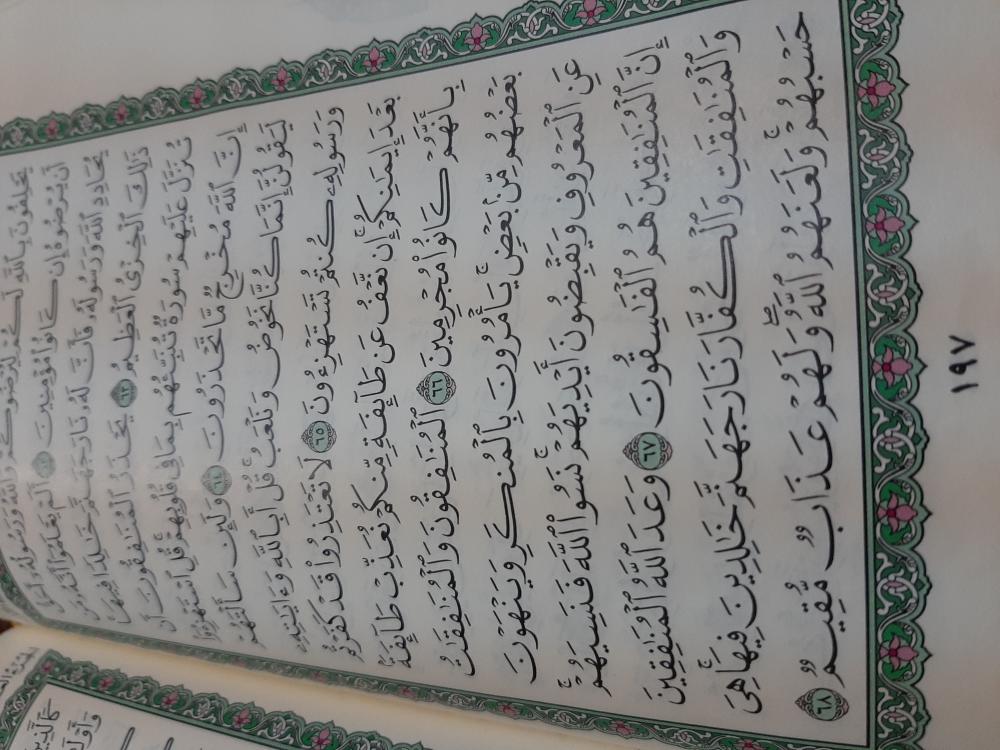 يَحْلِفُونَ بِاللَّهِ لَكُمْ لِيُرْضُوكُمْ وَاللَّهُ وَرَسُولُهُ أَحَقُّ
أَن يُرْضُوهُ إِن كَانُوا مُؤْمِنِينَ ٦٢ أَلَمْ يَعْلَمُوا أَنَّهُ مَن
يُحَادِدِ اللَّهَ وَرَسُولَهُ فَأَنَّ لَهُ نَارَ جَهَنَّمَ خَالِدًا فِيهَا
ذَٰلِكَ الْخِزْيُ الْعَظِيمُ ٦٣ يَحْذَرُ الْمُنَافِقُونَ أَن
تُنَزَّلَ عَلَيْهِمْ سُورَةٌ تُنَبِّئُهُم بِمَا فِي قُلُوبِهِمْ قُلِ اسْتَهْزِءُوا
إِنَّ اللَّهَ مُخْرِجٌ مَّا تَحْذَرُونَ ٦٤ وَلَئِن سَأَلْتَهُمْ
لَيَقُولُنَّ إِنَّمَا كُنَّا نَخُوضُ وَنَلْعَبُ قُلْ أَبِاللَّهِ وَءَايَاتِهِ
وَرَسُولِهِ كُنتُمْ تَسْتَهْزِءُونَ ٦٥ لَا تَعْتَذِرُوا قَدْ كَفَرْتُم
بَعْدَ إِيمَانِكُمْ إِن نَّعْفُ عَن طَائِفَةٍ مِّنكُمْ نُعَذِّبْ طَائِفَةً
بِأَنَّهُمْ كَانُوا مُجْرِمِينَ ٦٦ الْمُنَافِقُونَ وَالْمُنَافِقَاتُ
بَعْضُهُم مِّنْ بَعْضٍ يَأْمُرُونَ بِالْمُنكَرِ وَيَنْهَوْنَ
عَنِ الْمَعْرُوفِ وَيَقْبِضُونَ أَيْدِيَهُمْ نَسُوا اللَّهَ فَنَسِيَهُمْ
إِنَّ الْمُنَافِقِينَ هُمُ الْفَاسِقُونَ ٦٧ وَعَدَ اللَّهُ الْمُنَافِقِينَ
وَالْمُنَافِقَاتِ وَالْكُفَّارَ نَارَ جَهَنَّمَ خَالِدِينَ فِيهَا هِيَ
حَسْبُهُمْ وَلَعَنَهُمُ اللَّهُ وَلَهُمْ عَذَابٌ مُّقِيمٌ ٦٨
١٩٧